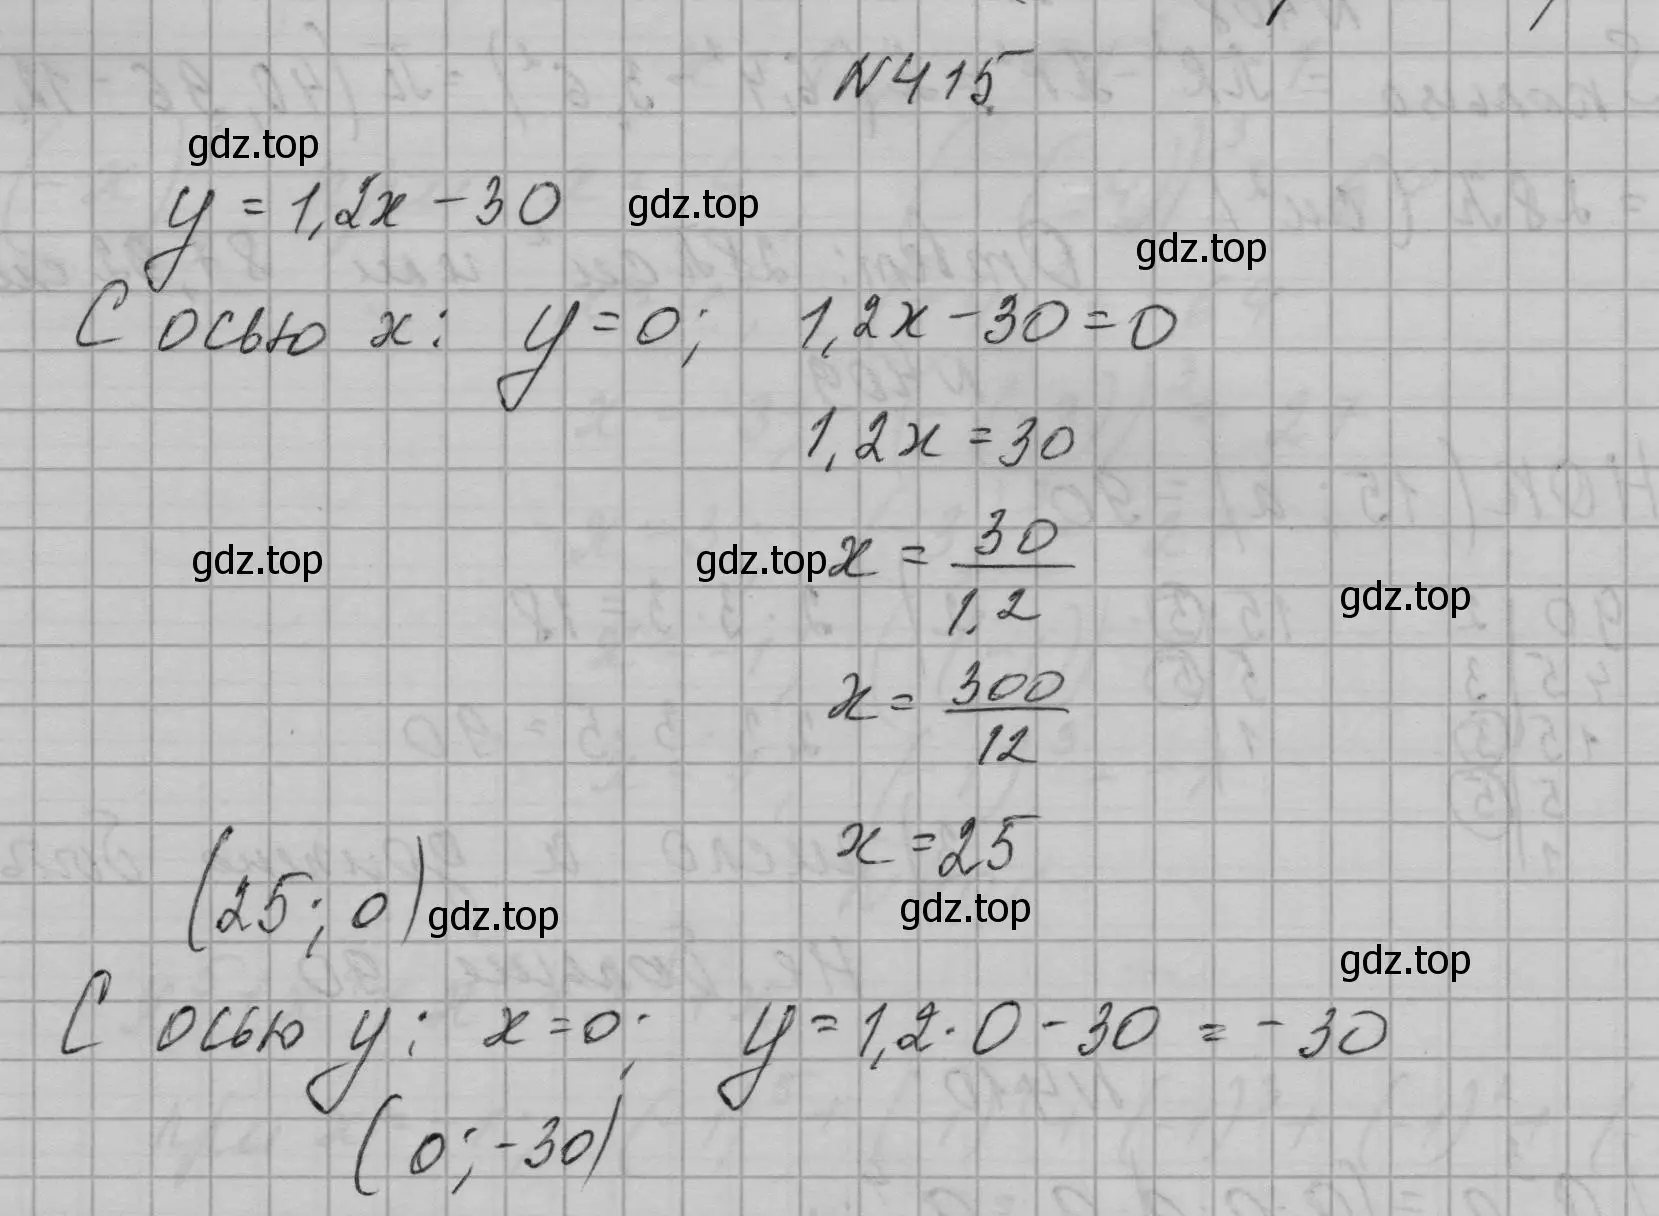 N415
gdz.top
y = 1,2x - 30 gdz.top
gdz.top
С осью x: y = 0; 1,2x - 30 = 0
1,2x = 30
gdz.top gdz.top x = 30/1,2
gdz.top
x = 300/12
x = 25
(25; 0) gdz.top gdz.top
gdz.top
С осью y: x = 0; y = 1,2 · 0 - 30 = -30
(0; -30)